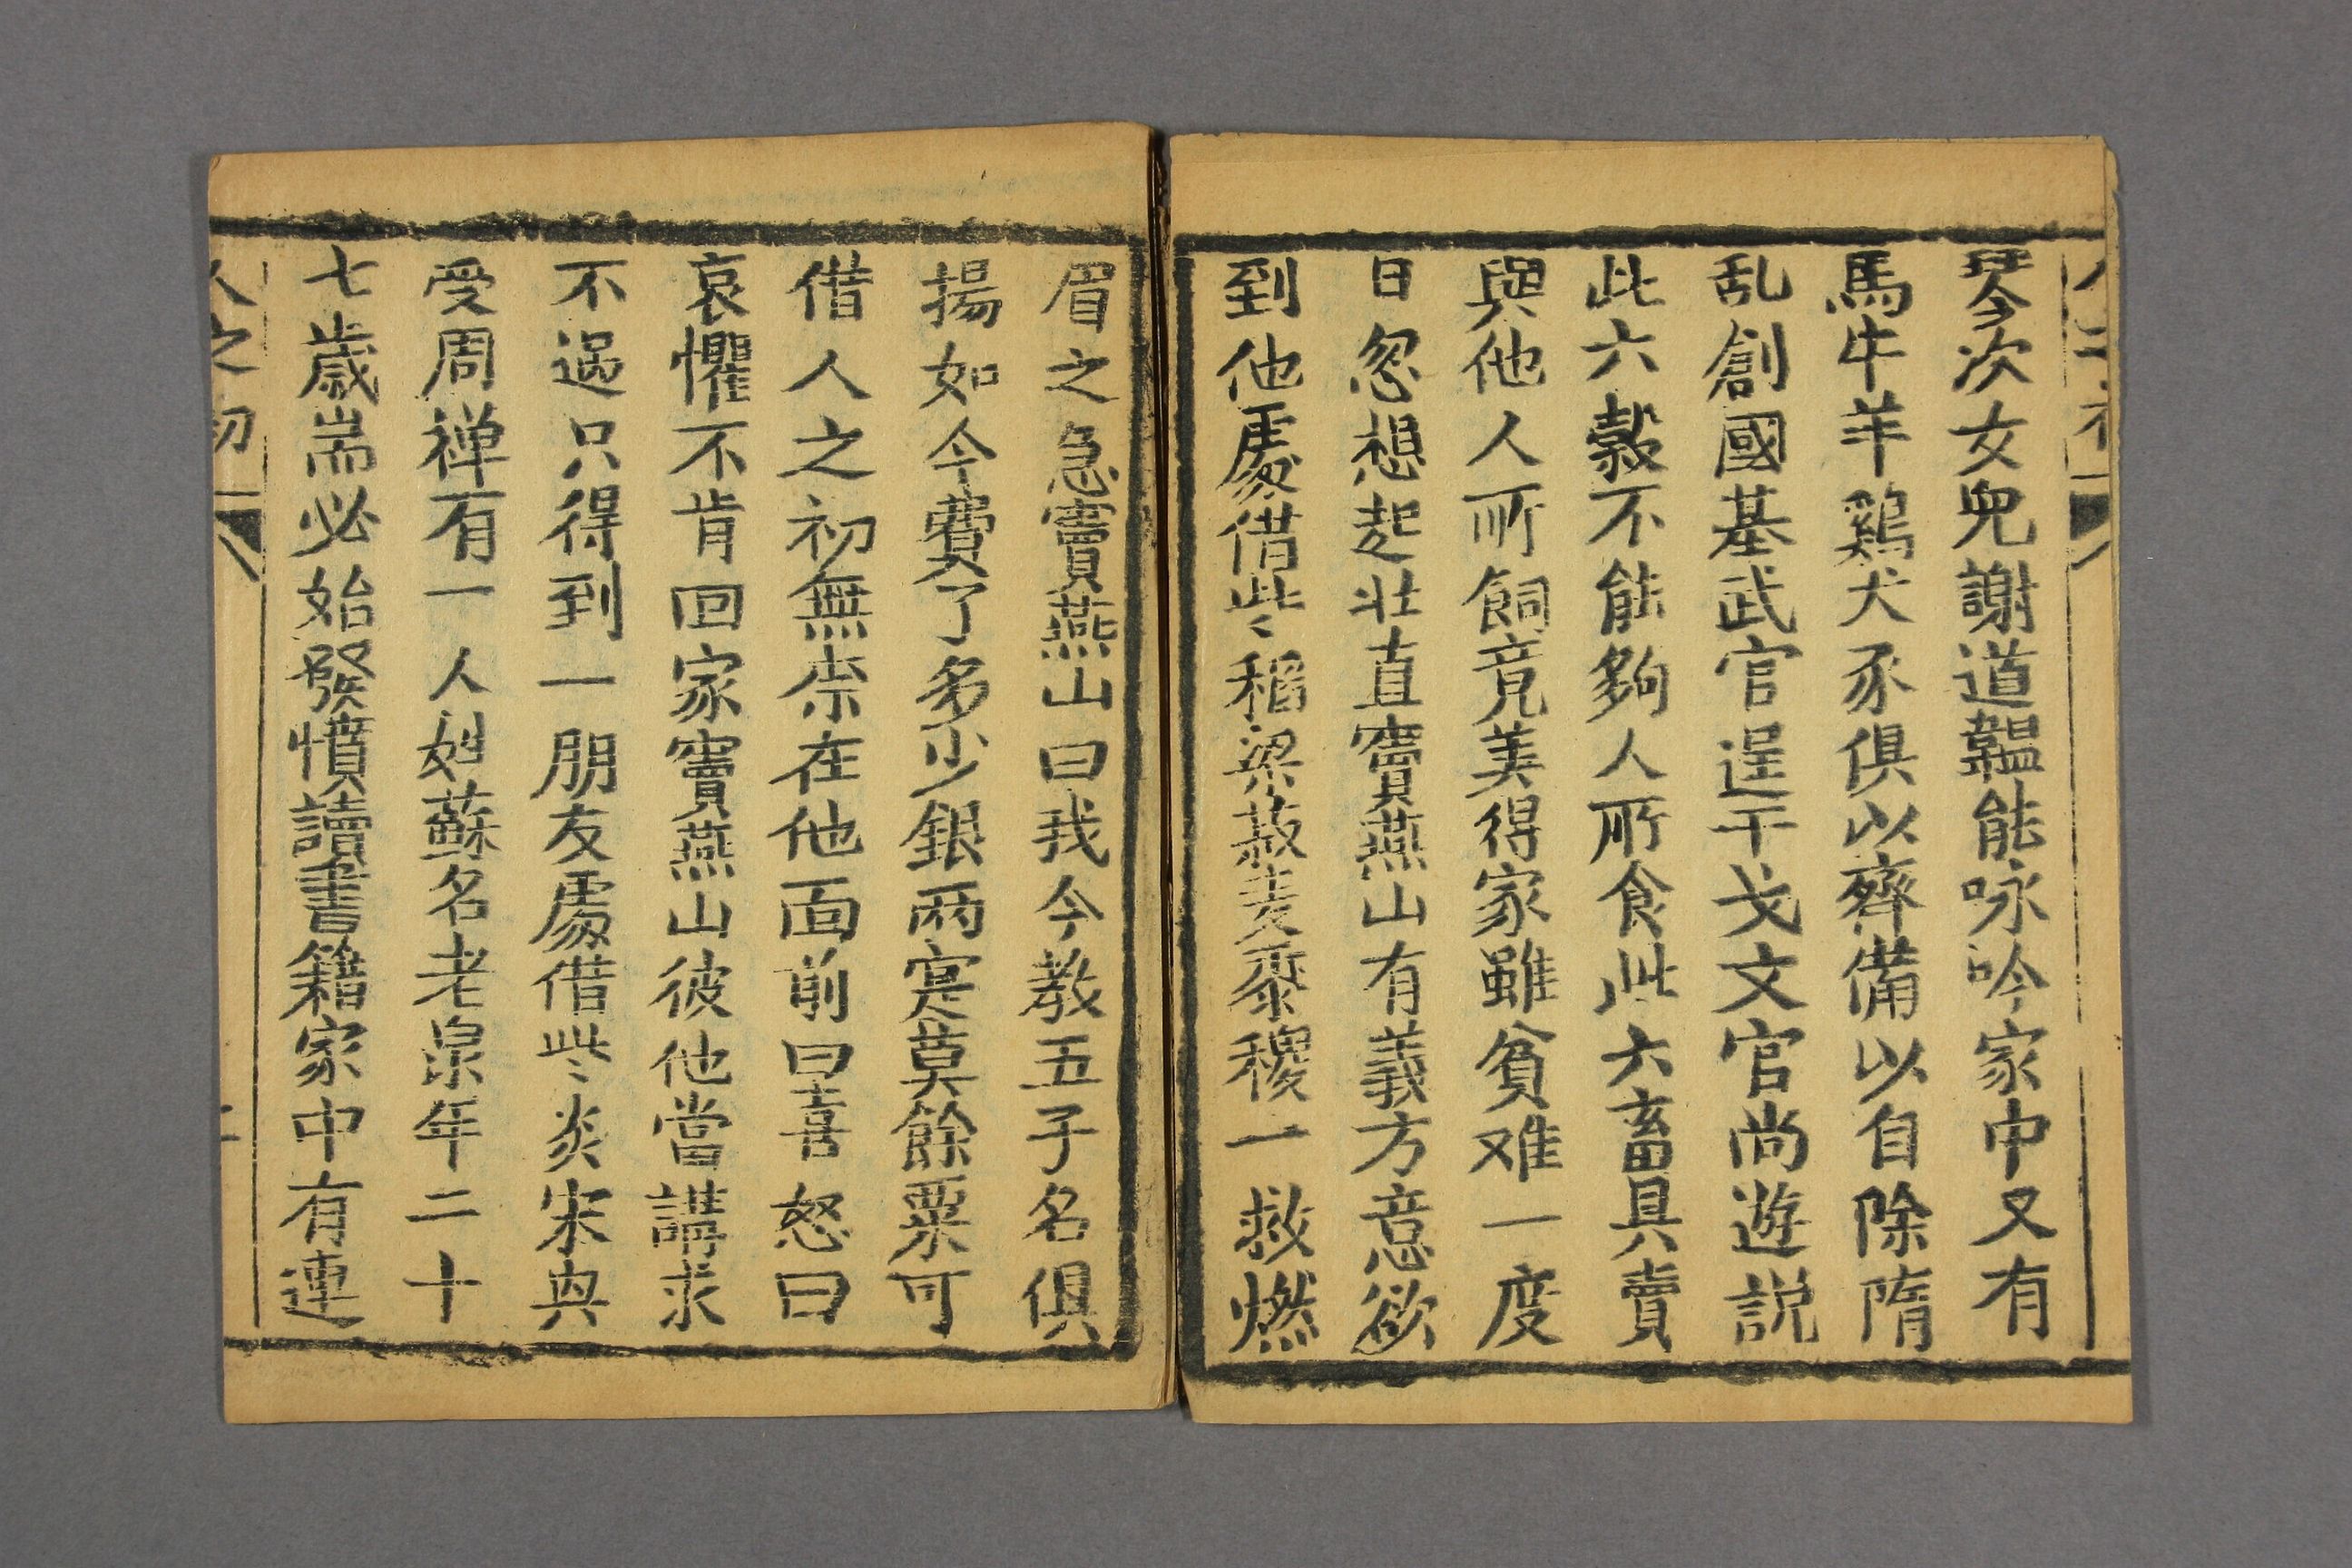 琴次女兒謝道韞能咏吟家中又有
馬牛羊鷄犬豕俱以齊備以自除隋
乱創國基武官逞干戈文官尚遊説
此六穀不能夠人所食此六畜具賣
與他人所飼竟美得家雖貧难一度
日忽想起壮直竇燕山有義方意欲
到他處借些稻粱菽麦黍稷一救燃
眉之急竇燕山曰我今教五子名俱
揚如今費了多少銀兩寔莫餘粟可
借人之初無柰在他面前曰喜怒曰
哀懼不肯回家竇燕山彼他當講求
不過只得到一朋友處借些炎宋與
受周禅有一人姓蘇名老泉年二十
七歲耑必始發憤讀書籍家中有連
人之初